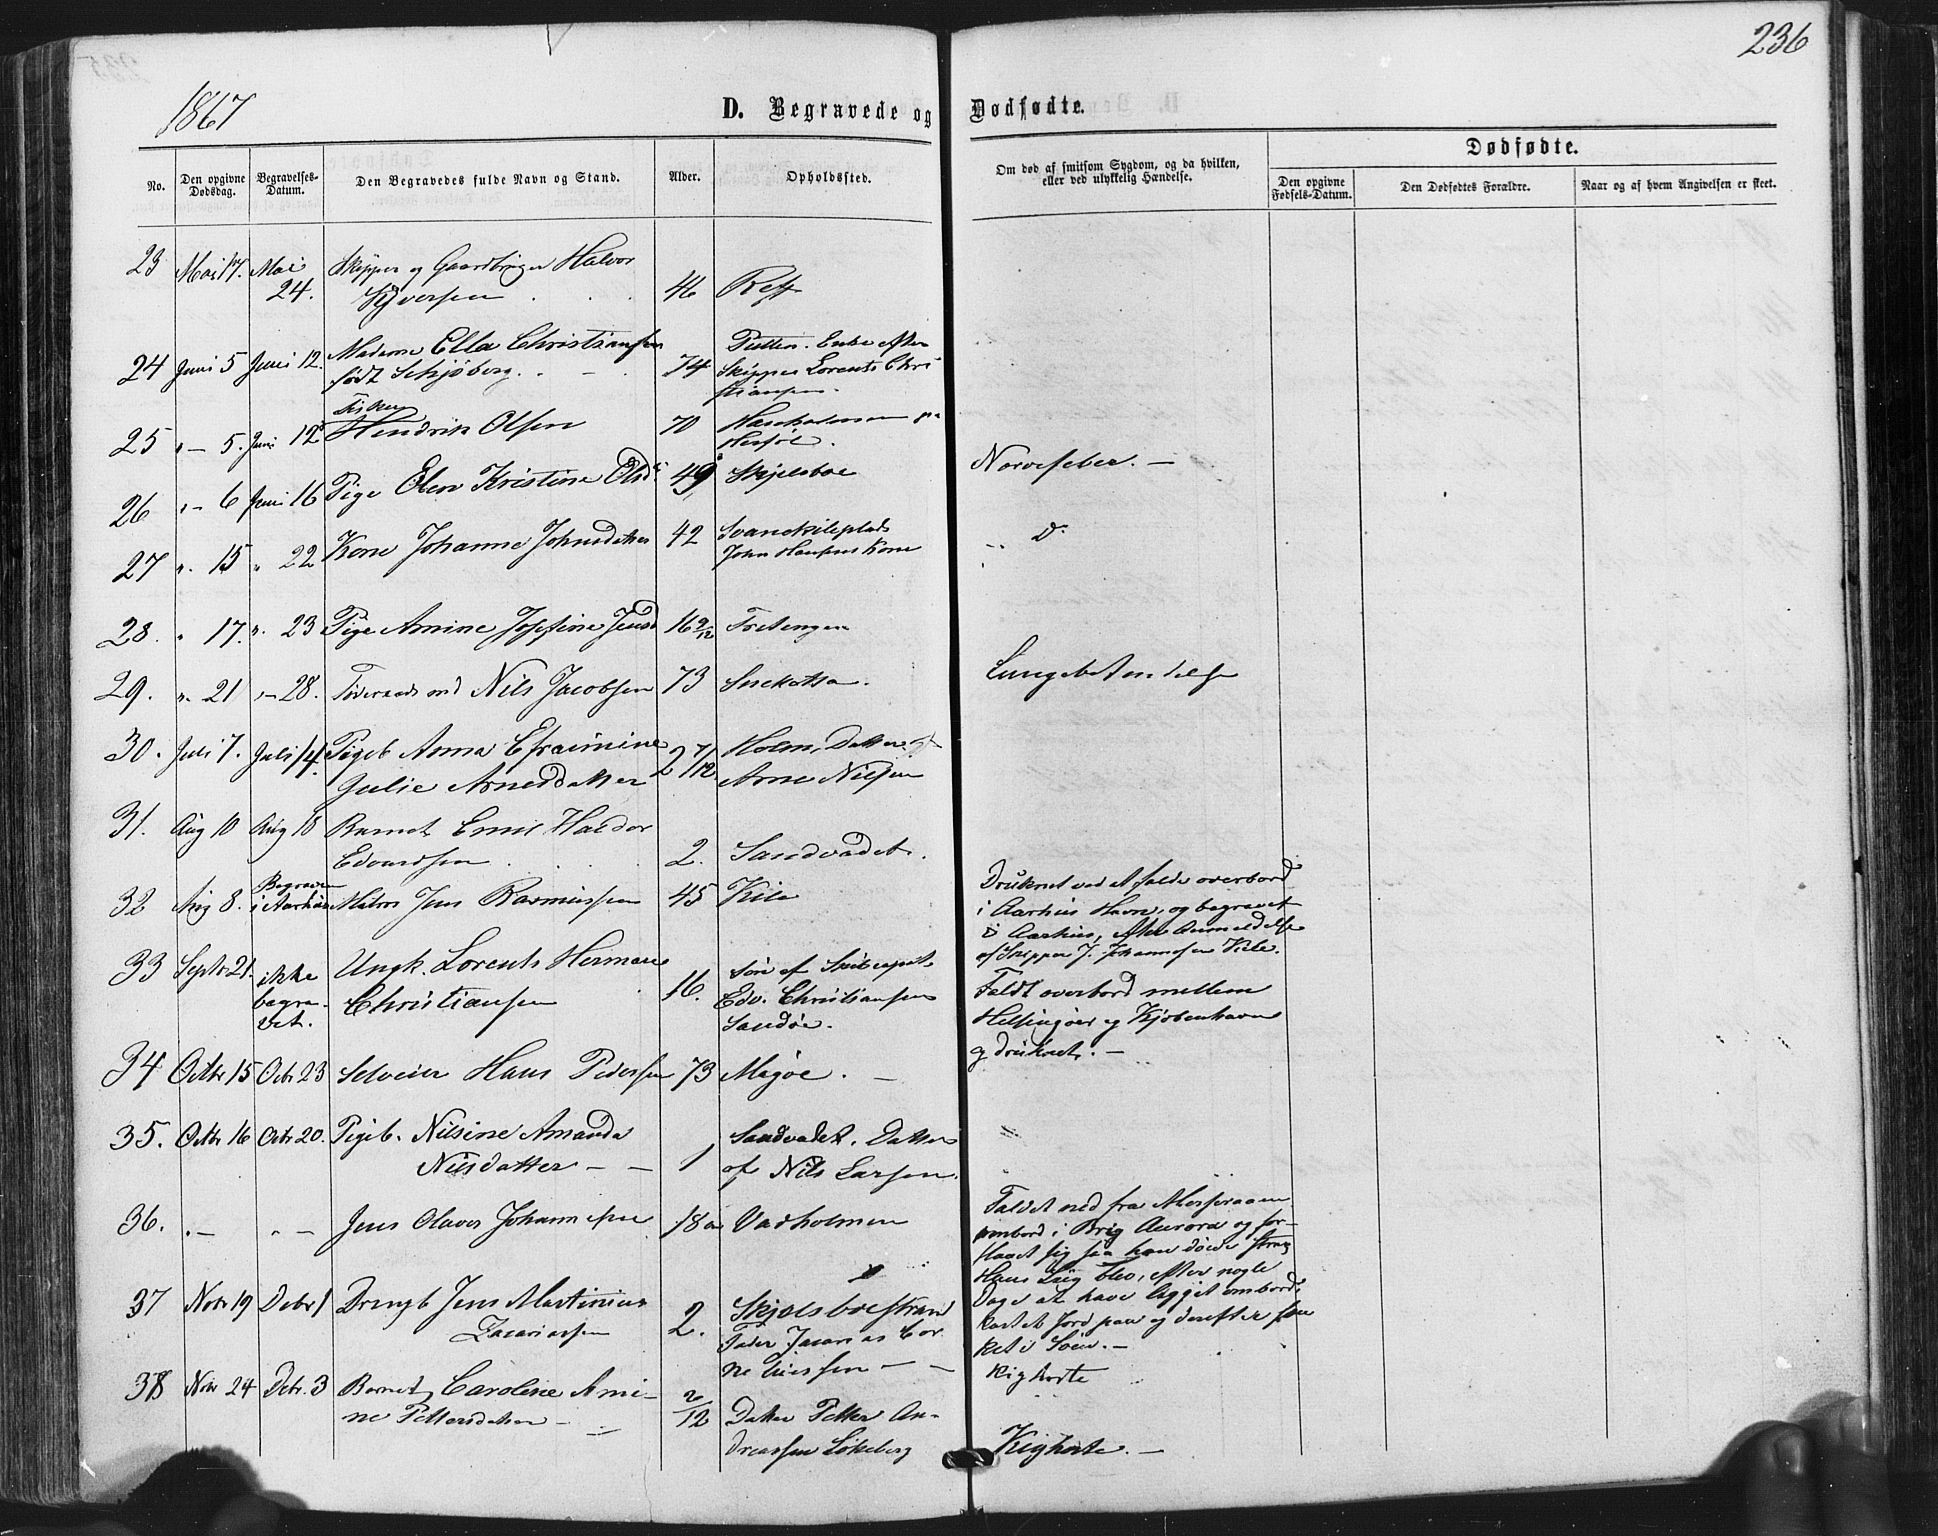 236
1867
D. Begravede og Dødfødte.
No.
Den opgivne Dødsdag.
Begravelses-Datum.
Den Begravedes fulde Navn og Stand.
Alder.
Opholdssted.
Om død af smitsom Sygdom, og da hvilken,
eller ved ulykkelig Hændelse.
Dødfødte.
Den opgivne Fødsels-Datum.
Den Dødfødtes Forældre.
Naar og af hvem Angivelsen er skeet.
23 Mai 17. Mai 24. Skipper og Gaardbruger Halvor
Syversen 46 Reff
24 Juni 5 Juni 12. Madame Ella Christiansen 74 Putten. Enke efter
født Schjøberg. Skipper Lorents Chri
stiansen.
Fisker
25 " - 5. Juni 12 Hendrik Olsen 70
26 " - 6 Juni 16 Pige Elen Kristine Olsd 49 Skjelsboe Nervefeber. -
27 " 15 " 22 Kone Johanne Johnsdatter 42 Svanekileplads
John Hansens Kone
" Do
28. " 17. " 23 Pige Amine Josefine Jensd 16 9/12 Tretengen
29. " 21 " - 28. Føderaadsmd Nils Jacobsen 73 Snekotta. Lungebetændelse
30. Juli 7. Juli 14. Pigeb Anna Efraimine 2 7/12 Holm, Datter af
Julie Arnesdatter Arne Nilsen
31. Aug 10 Aug 18 Barnet Emil Haldor
Edvardsen 2. Sandvadet.
32 Aug 8. Begraven i Aarhus Matros Jens Rasmussen 45 Kile
Druknet ved at falde overbord
i Aarhus Havn, og begravet
i Aarhus, efter Anmeldelse
af Skipper J. Johannesen Kile.
33 Septr 21. ikke begra-vet. Ungk. Lorents Herman
Christiansen 16. Søn af Skibscapt.
Edv. Christiansen
Sandøe.
Faldt overbord mellem
Helsingøer og Kjøbenhavn
og druknet. -
34 Octbr 15 Octbr 23 Selveier Hans Pedersen 73 Magøe. -
35. Octbr 16 Octbr 20. Pigeb. Nilsine Amanda
Nilsdatter - - 1 Sandvadet. Datter
af Nils Larsen.
36. " - " - Jens Olaves Johannesen 18 Vadholmen
Faldet ned fra Mersraaen
ombord i Brig Aurora og for-
slaaet sig saa han døede strax
Hans Liig blev, efter nogle
Dage at have ligget ombord,
kastet Jord paa og derefter sæn
ket i Søen. -
37 Novbr 19 Debr 1 Drengb Jens Martinius
Zacariassen 2. Skjelsboestran
Fader Zacarias Cor
neliussen - -
Kighoste
38 Nov 24 Debr. 3 Barnet Caroline Ami-
ne Pettersdatter - 2/12 Datter Petter An-
dreassen Løkeberg
Kighoste. -